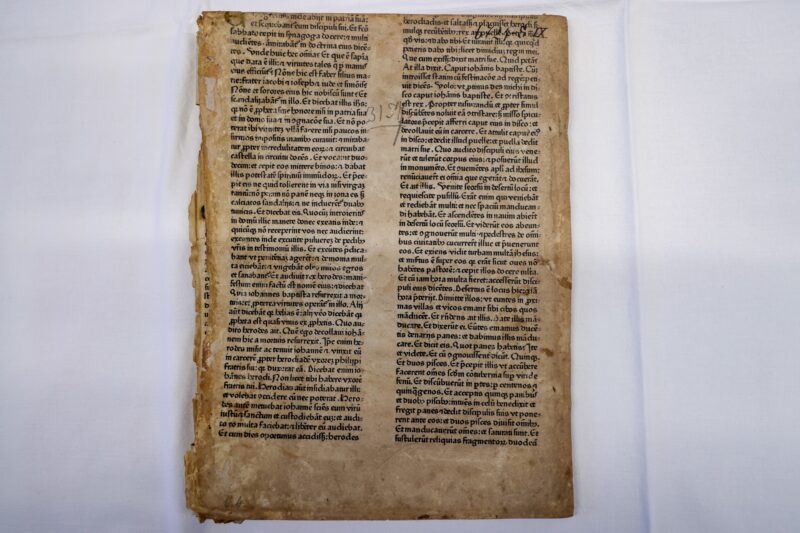 egressus inde abiit in patriā suā:
et sequebant̄ eum discipuli sui. Et facto
sabbato cepit in synagoga docere: ⁊ multi
audiētes āmirabāt̄ in doctrina eius dicē-
tes. Unde huic hec omnia? Et que ē sapiā
que data ē illi: ⁊ virtutes tales q̄ p̄ manus
eius efficiunt̄? Nōne hic est faber filius ma-
rie: frater iacobi ⁊ ioseph ⁊ iude et simōis?
Nōne et sorores eius hic nobiscū sunt? Et
scandalizabāt̄ in illo. Et dicebat illis ihs:
qꝛ nō ē ꝓpheta sine honore nisi in patria sua
et in domo sua ⁊ in cognacōe sua. Et nō po-
terat ibi virtutē vllā facere nisi paucos in-
firmos impositis manibꝰ curauit: ⁊ miraba-
tur ꝓpter incredulitatem eorū: ⁊ circuibat
castella in circuitu docēs. Et vocauit duo
decim: et cepit eos mittere binos: ⁊ dabat
illis potestatē spirituū immūdoꝝ. Et p̄ce-
pit eis ne quid tollerent in via nisi virgā
tantū: nō peram nō panē neqꝫ in zona es sꝫ
calciatos sandalijs: ⁊ ne induerēt̄ duabꝰ
tunicis. Et dicebat eis. Quocūqꝫ introieritis
in domū illic manete donec exeatis inde: ⁊
quicūqꝫ nō receperint vos nec audierint:
exeuntes inde excutite puluerez de pedibꝰ
vestris in testimoniū illis. Et exeūtes p̄dica-
bant vt penitētiā agerēt: ⁊ demonia mul-
ta eiciebāt: ⁊ vngebāt oleo multos egros
et sanabāt̄. Et audiuit rex herodes: mani-
festum enim factū est nomē eius: ⁊ dicebat
Quia iohannes baptista resurrexit a mor-
tuis: et ꝓpterea virtutes operāt̄ in illo. Alij
aūt dicebāt qꝛ helias ē: alij vero dicebāt qꝛ
ꝓpheta est quasi vnus ex ꝓphetis. Quo au-
dito herodes ait. Quē ego decollaui iohan-
nem hic a mortuis resurrexit. Ipse enim he-
rodes misit ac tenuit iohannē ⁊ vinxit eū
in carcere ꝓpter herodiadē vxorez philippi
fratris sui: qꝛ duxerat eā. Dicebat enim io-
hannes herodi. Non licet tibi habere vxorē
fratris tui. Herodias aūt insidiabatur illi:
et volebat occidere eū nec poterat. Hero-
des aūt metuebat iohannē sciēs eum virū
iustū ⁊ sanctum et custodiebat eum: et audi-
to eo multa faciebat: ⁊ libēter eū audiebat.
Et cum dies oportunus accidisset: herodes
herodiadis et saltasset ⁊ placuisset herodi si-
mulqꝫ recūbentibꝰ: rex ait
qd vis: ⁊ dabo tibi Et iurauit illi: qꝛ quicqd
petieris dabo tibi: licet dimidiū regni mei.
Que cum exisset: dixit matri sue. Quid petā?
At illa dixit. Caput iohānis baptiste. Cūqꝫ
introisset statim cū festinacōe ad regē: peti-
uit dicēs. Volo: vt ꝓtinus des michi in di-
sco caput iohānis baptiste. Et ꝯtristatus
est rex. Propter iusiurandū et ꝓpter simul
discūbētes noluit eā ꝯtristare: sꝫ misso spicu-
latore p̄cepit afferri caput eius in disco: et
decollauit eū in carcere. Et attulit caput eiꝰ
in disco: et dedit illud puelle: et puella dedit
matri sue. Quo audito discipuli eius vene-
runt et tulerūt corpus eius: ⁊ posuerūt illud
in monumēto. Et ꝯueniētes apli ad ihesum:
renūciauerūt ei omnia que egerāt ⁊ docuerāt.
Et ait illis. Venite seorsū in desertū locū: et
requiescite pusillū. Erāt enim qui veniebāt
et redibāt multi: et nec spaciū manducan-
di habebāt. Et ascendētes in nauim abierūt
in desertū locū seorsū. Et viderūt eos abeun-
tes: et cognouerūt multi: ⁊ pedestres de omni-
bus ciuitatibꝰ cucurrerūt illuc et p̄uenerunt
eos. Et exiens vidit turbam multā ihesus:
et misertus ē super eos: qꝛ erāt sicut oues nō
habētes pastorē: ⁊ cepit illos docere multa.
Et cū iam hora multa fieret: accesserūt disci-
puli eius dicētes. Desertus ē locus hic: ⁊ iā
hora p̄teriit. Dimitte illos: vt euntes in ꝓxi-
mas villas et vicos emant sibi cibos quos
māducēt. Et rn̄dens ait illis. Date illis mā-
ducare. Et dixerūt ei. Eūtes emamus ducē-
tis denarijs panes: ⁊ dabimus illis mādu-
care. Et dicit eis. Quot panes habetis? Ite
et videte. Et cū cognouissent dicūt. Quinqꝫ.
et duos pisces. Et p̄cepit illis vt accūbere
facerent omēs secūm contubernia sup viride
fenū. Et discubuerūt in ptes: p centenos ⁊
quinq̄genos. Et acceptis quinqꝫ panibus
et duobꝰ piscibꝰ: intuēs in celū benedixit et
fregit panes ⁊ dedit discipulis suis vt pone-
rent ante eos: et duos pisces diuisit omībꝰ.
Et manducauerūt omēs: et saturati sunt. Et
sustulerūt reliquias fragmentoꝝ duodecī